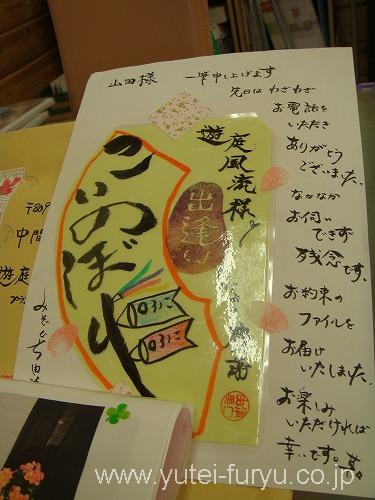 山田様
一筆申し上げます
先日は わざわざ
お電話を
いただき
ありがとう
ございました。
なかなか
お伺い
できず
残念です。
お約束の
ファイルを
お届け
いたしました。
お楽しみ
いただければ
幸いです。
遊庭風流様
出逢い
こいのぼり
中間
遊庭
www.yutei-furyu.co.jp